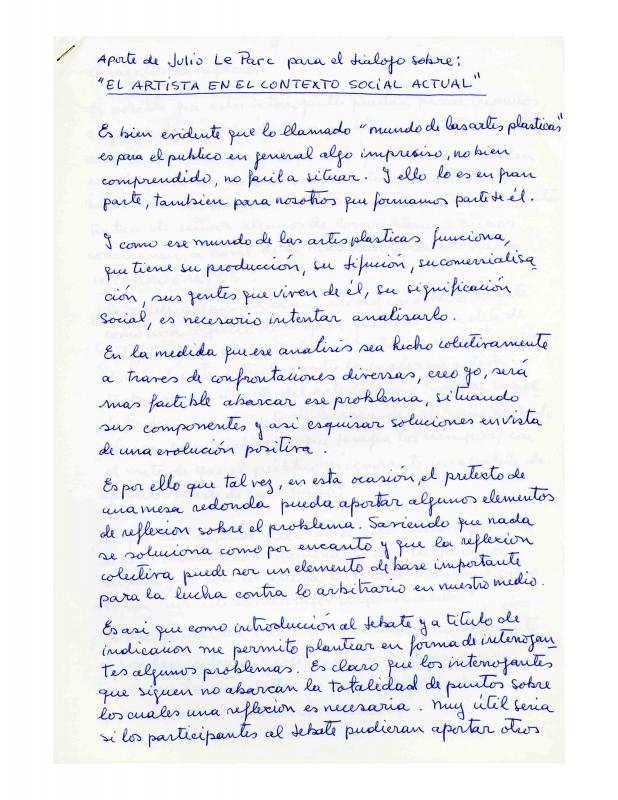 Aporte de Julio Le Parc para el dialogo sobre:
"EL ARTISTA EN EL CONTEXTO SOCIAL ACTUAL"
Es bien evidente que lo llamado "mundo de las artes plasticas"
es para el publico en general algo impresiso, no bien
comprendido, no facil a situar. Y ello lo es en gran
parte, tambien para nosotros que formamos parte de él.
Y como ese mundo de las artes plasticas funciona,
que tiene su producción, su difución, su comersialisa
ción, sus gentes que viven de él, su significación
social, es necesario intentar analisarlo.
En la medida que ese analisis sea hecho colectivamente
a traves de confrontaciones diversas, creo yo, será
mas factible abarcar ese problema, situando
sus componentes y asi esquisar soluciones en vista
de una evolución positiva.
Es por ello que tal vez, en esta ocasión, el pretexto de
una mesa redonda pueda aportar algunos elementos
de reflexion sobre el problema. Sabiendo que nada
se soluciona como por encanto y que la reflexion
colectiva puede ser un elemento de base importante
para la lucha contra lo arbitrario en nuestro medio.
Es asi que como introducción al debate y a titulo de
indicacion me permito plantear en forma de interrogan_
tes algunos problemas. Es claro que los interrogantes
que siguen no abarcan la totalidad de puntos sobre
los cuales una reflexion es necesaria. Muy útil seria
si los participantes al debate pudieran aportar otros